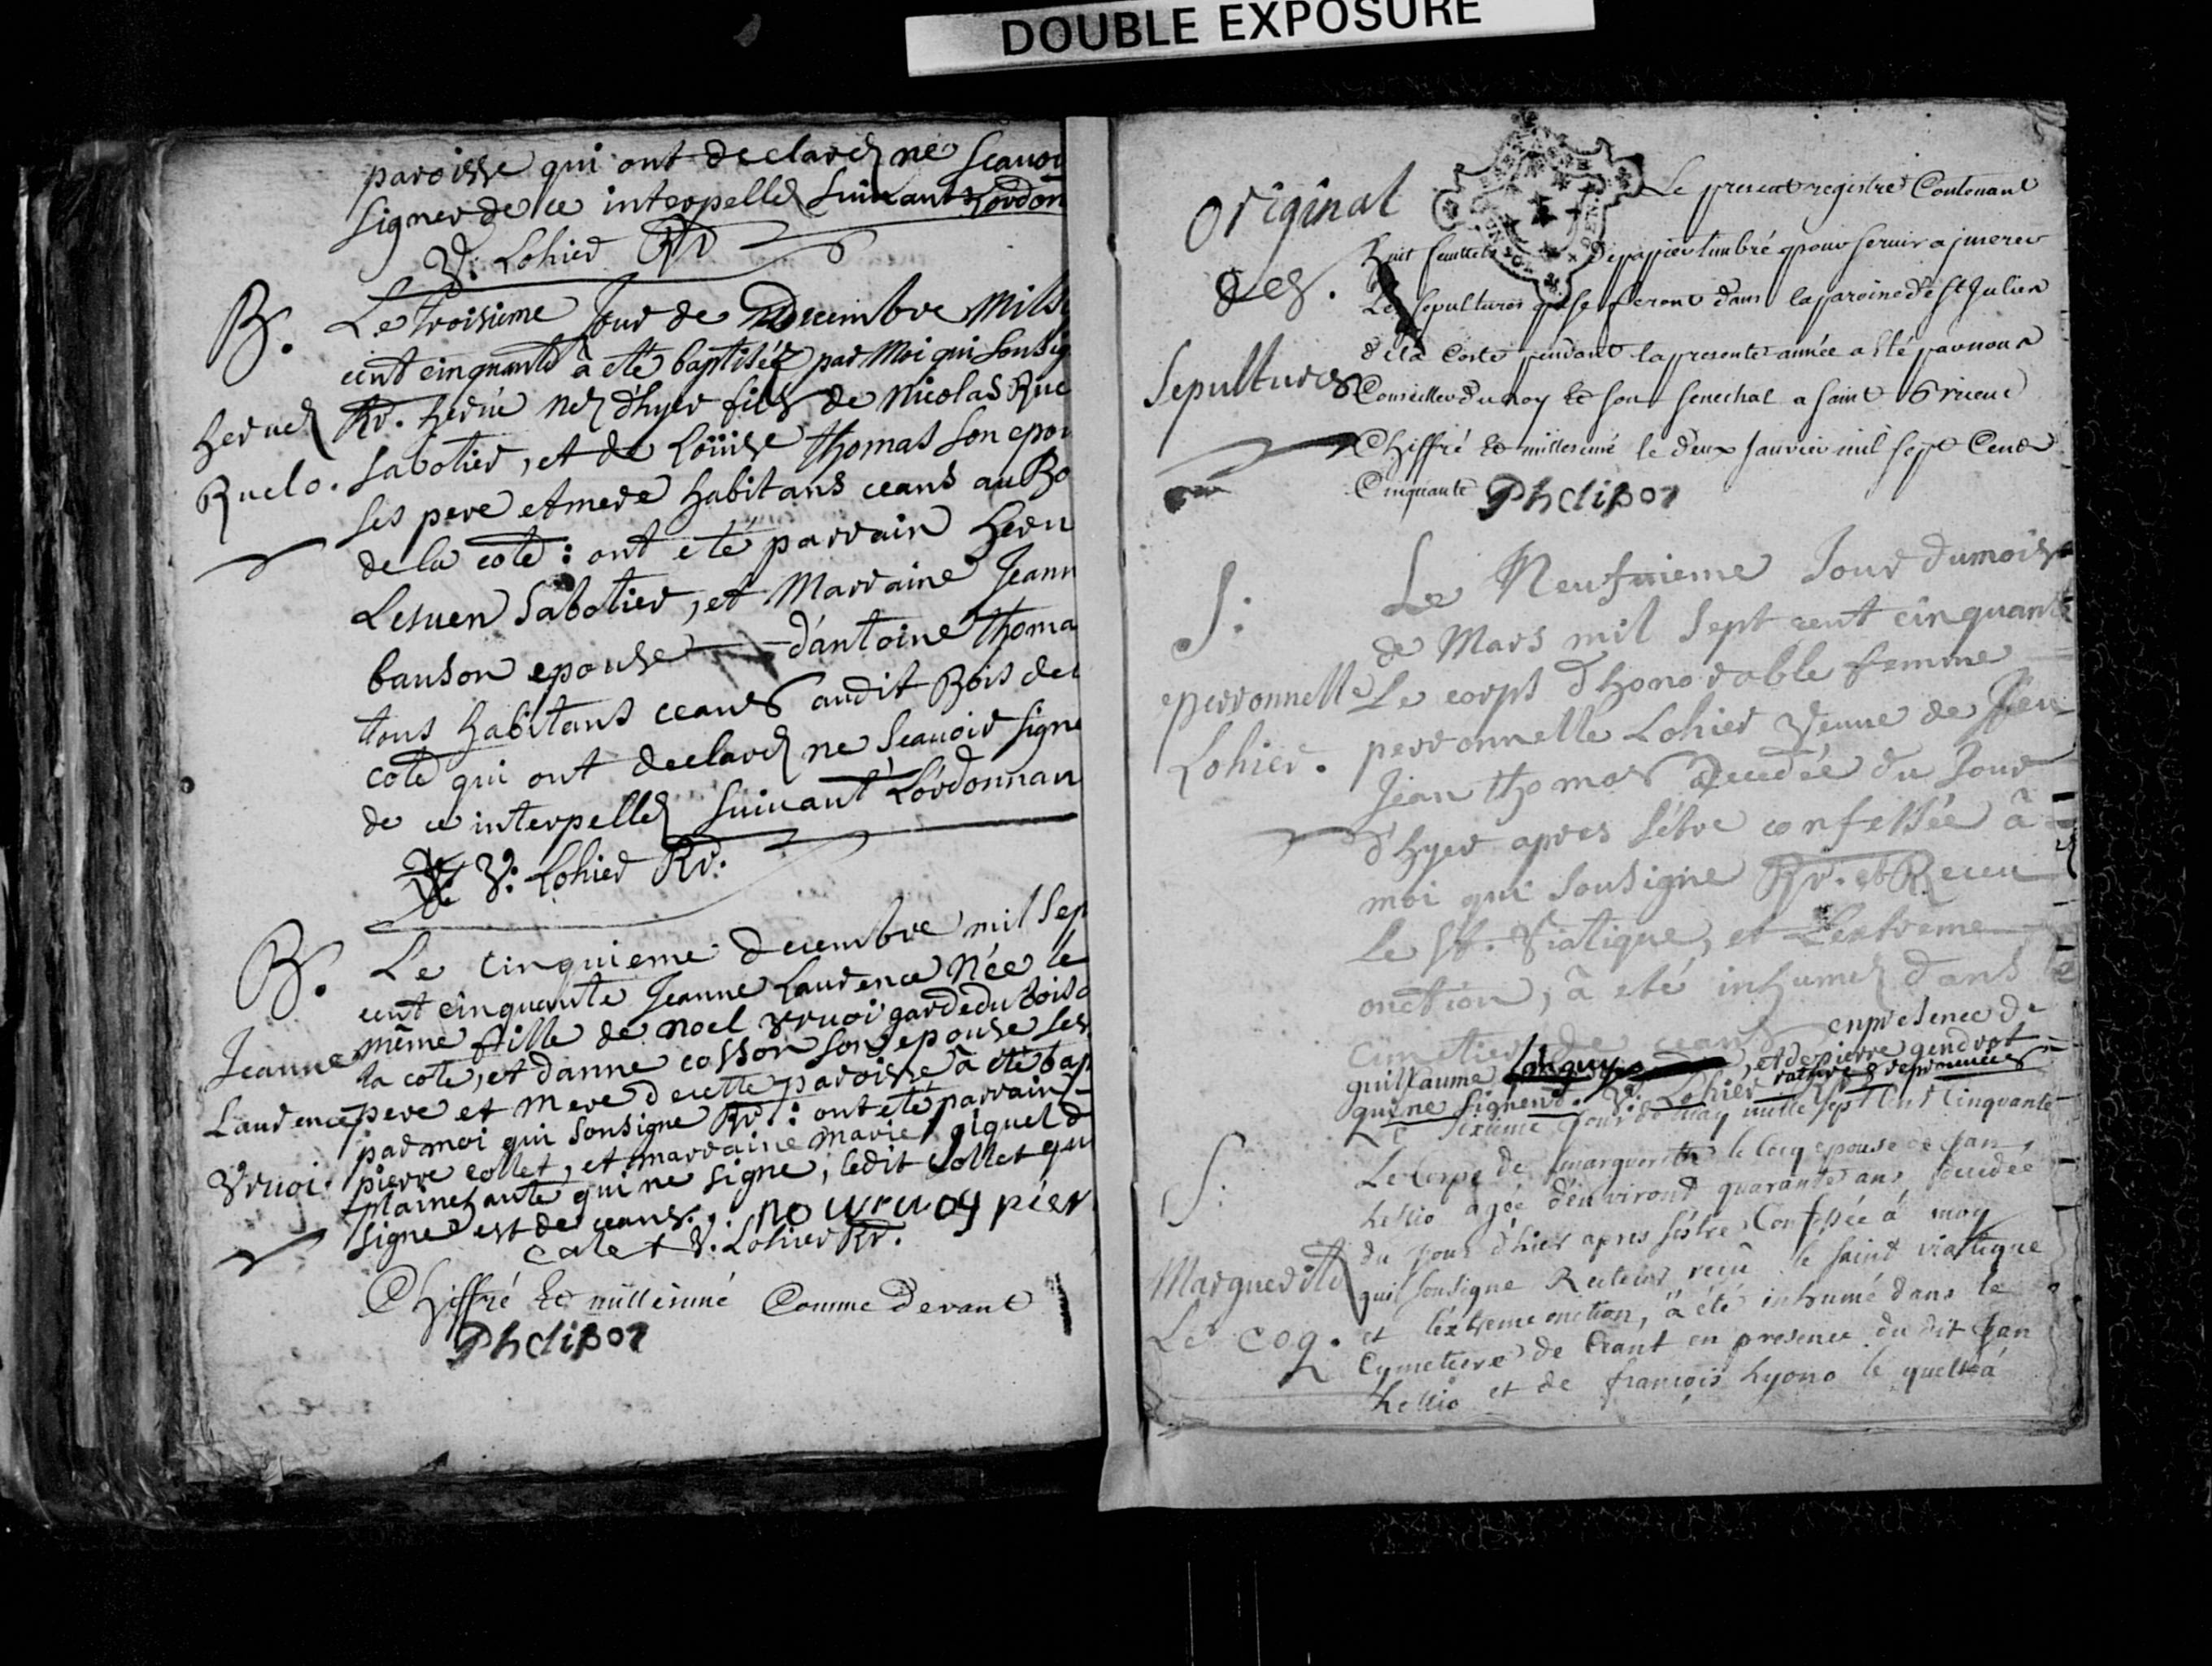 DOUBLE EXPOSURE
paroisse qui ont declaréz ne scauoi
signer de ce interpelléz suiuant Lordon
V: Lohier Rr
B. Le troisieme Jour de Decembre Mil s
cent cinquante à eté baptiséz par Moi qui sousig
Heruéz Rr. herué néz d'hyer fils de Nicolas Rue
Ruelo. Sabotier, et de Loüise thomas son epou
ses pere et mere habitans ceans au Bo
de la cote: ont eté parrain Heru
Lesuen Sabotier, et Marraine Jeann
banson epouse d'antoine thoma
tous habitans ceans audit Bois de l
cote qui ont declaréz ne scauoir signe
de ce interpelléz suiuant L'ordonnan
V: Lohier Rr:
B. Le Cinquieme decembre mil sep
cent cinquante Jeanne Laurence Née le
même fille de noel vruoi garde du bois d
Jeanne la cote, et d'anne cosson son epouse ses
Laurence pere et mere de cette paroisse à eté bap
par moi qui sousigne Rr: ont eté parrain
Vruoi. pierre collet, et marraine marie giquel d
plainehaute qui ne signe, ledit collet qu
signe est de ceans. no uruoy pier
calet V: Lohier Rr.
Chiffré et millesimé Comme devant
Phelipot
Original
des.
Sepultures
Le present registre Contenant
huit feuillets de papier timbré pour seruir a jnserer
Les sepultures qui se feront dans la paroisse de st Julien
de la Coste pendant la presente année a eté par nous
Conseiller du roy et son senechal a saint Brieuc
Chiffré et millesimé le deux Janvier mil sept Cent
Cinquante Phelipot
S: Le Neufuieme Jour du mois
de Mars mil sept cent cinquante
perronnelle Le corps d'honorable femme
Lohier. perronnelle Lohier Veuue de feu
Jean thomas decedée du Jour
d'hyer apres s'être confessée à
moi qui sousigne Rr. et Receu
le St. Viatique, et L'extreme
onction, à eté inhuméz dans le
cimetiere de ceans en presence de
guillaume , et de pierre gendrot
qui ne signent. V: Lohier rature reprouuée
S. Le sixieme jour de may mille sept Cent Cinquante
Le Corps de marguerite le Coq epouse de jan
hellio agée d'environt quarante ans, decedée
du jour d'hier apres s'éstre Confessée á moy
Marguerite qui sousigne Recteur, reçu le saint viatique
Le coq. et l'extreme onction, à été inhumé dans le
Cymetiere de Ceant en presence du dit jan
hellio et de françois hyono le quel á